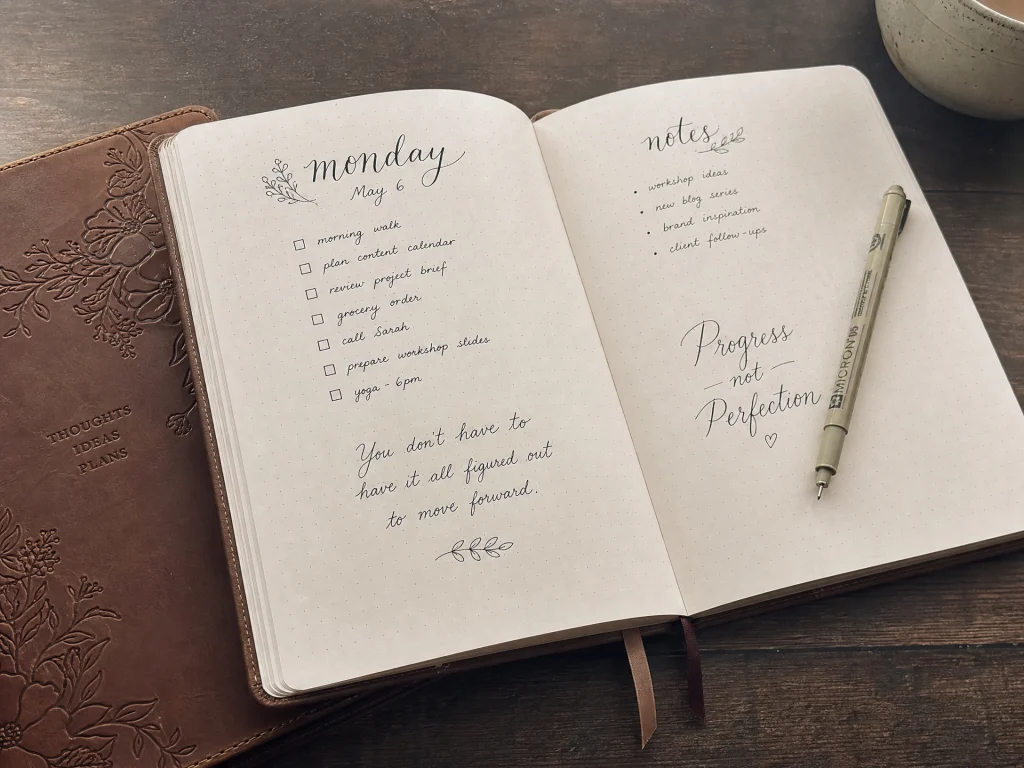 THOUGHTS
IDEAS
PLANS
monday
May 6
morning walk
plan content calendar
review project brief
grocery order
call Sarah
prepare workshop slides
yoga - 6pm
You don't have to
have it all figured out
to move forward.
notes
workshop ideas
new blog series
brand inspiration
client follow-ups
Progress
- not -
Perfection
MICRON